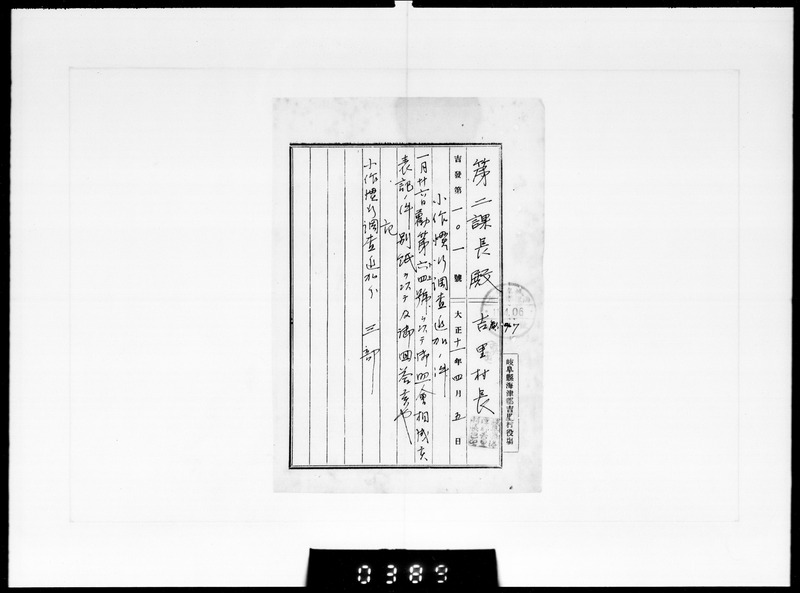 吉發第一〇一號　大正十一年四月五日
第二課長殿　吉里村長
岐阜縣海津郡吉里村役場
小作慣行調査追加ノ件
一月廿六日勸第六四號ヲ以テ御照會相成候
表記ノ件別紙ヲ以テ及御回答候也
記
小作慣行調査追加分　三部
0389